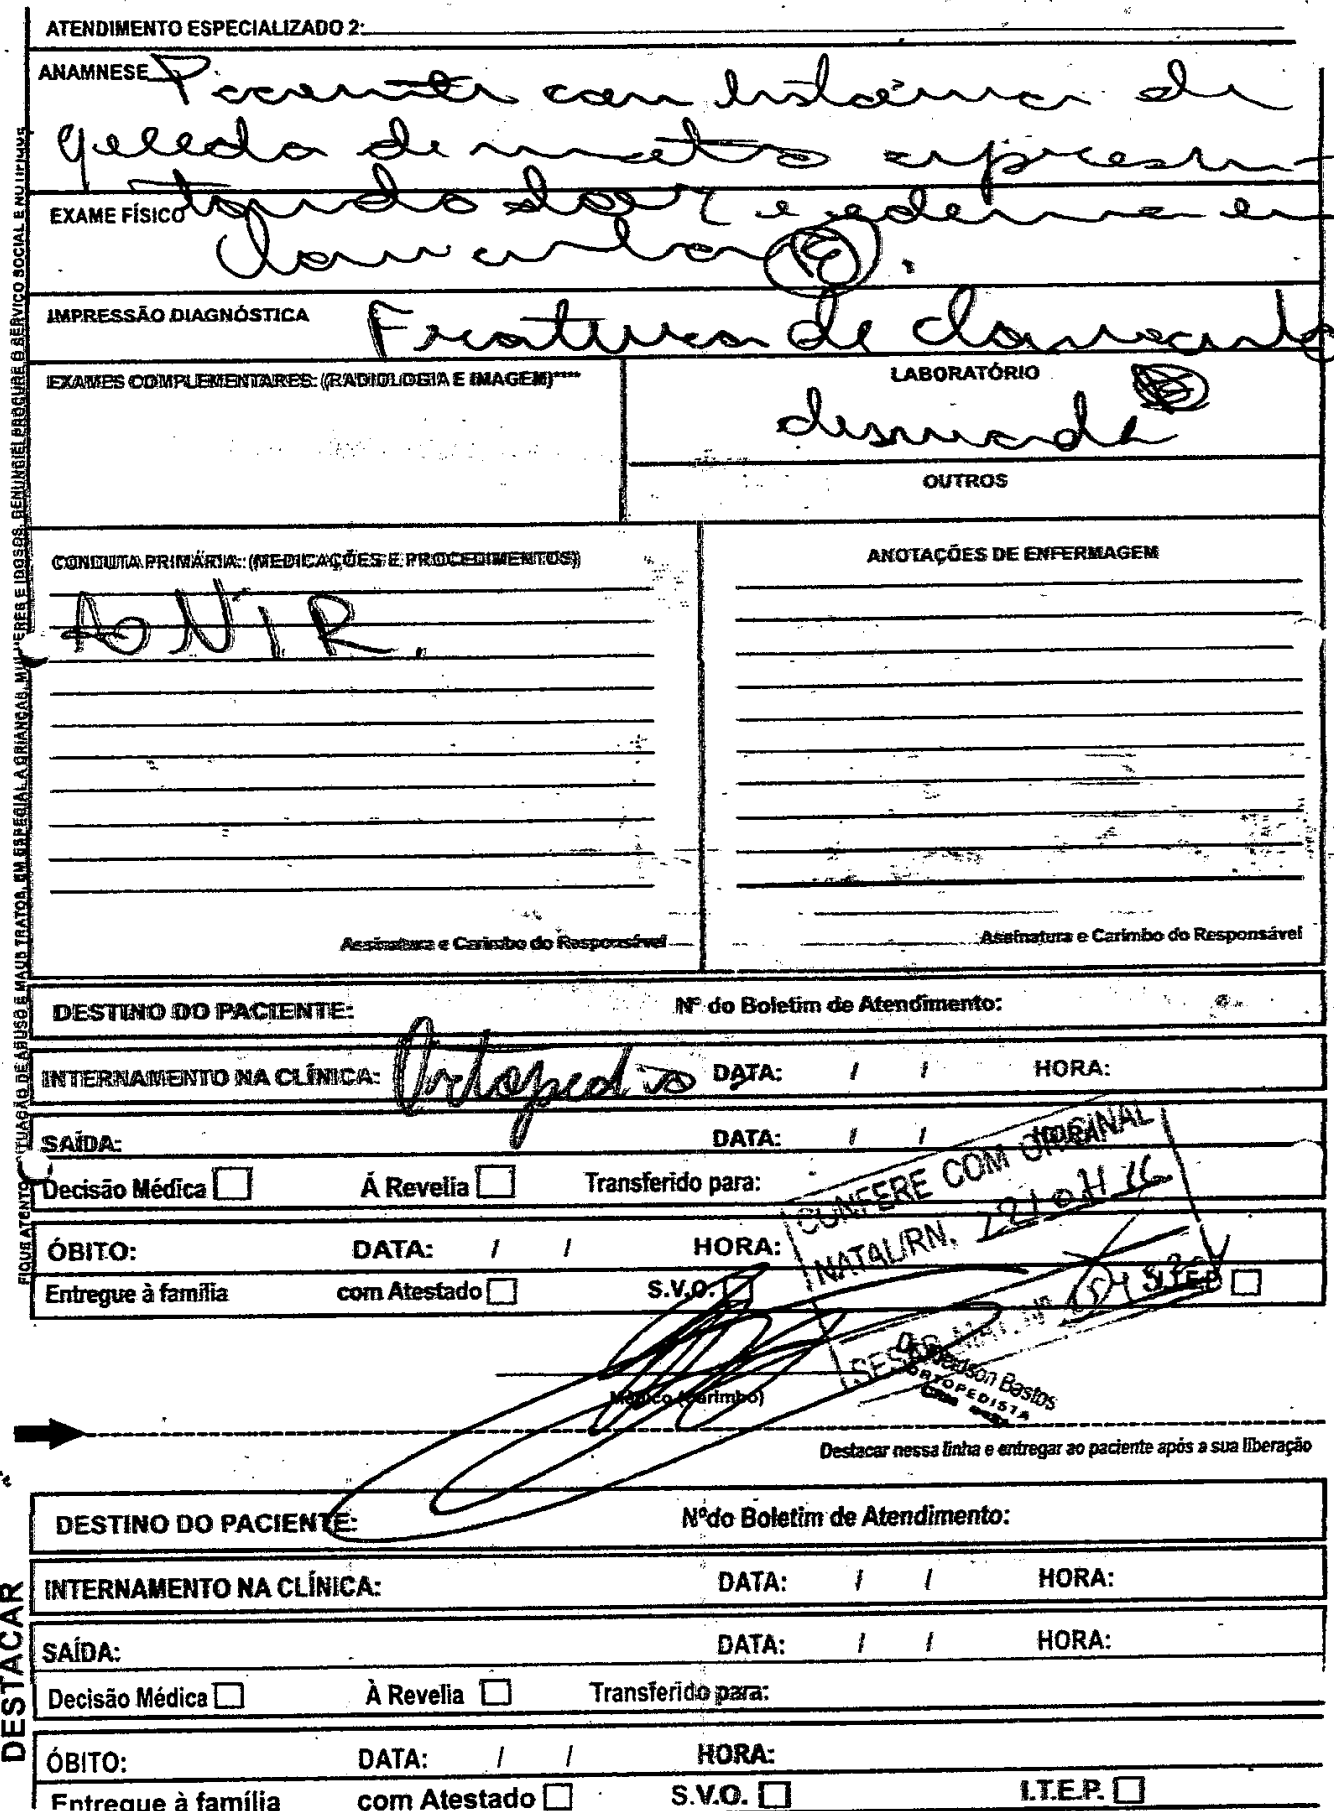 ATENDIMENTO ESPECIALIZADO 2:
ANAMNESE Paciente com história de
queda de moto apresen-
tando dor e edema em
EXAME FÍSICO
clavícula (E).
IMPRESSÃO DIAGNÓSTICA Fratura de clavícula
EXAMES COMPLEMENTARES: (RADIOLOGIA E IMAGEM)****
LABORATÓRIO
desviada
OUTROS
CONDUTA PRIMÁRIA: (MEDICAÇÕES E PROCEDIMENTOS)
Ao NIR.
ANOTAÇÕES DE ENFERMAGEM
Assinatura e Carimbo do Responsável
Assinatura e Carimbo do Responsável
DESTINO DO PACIENTE: Nº do Boletim de Atendimento:
INTERNAMENTO NA CLÍNICA: Ortopedia DATA: / / HORA:
SAÍDA: DATA: / / HORA:
Decisão Médica Á Revelia Transferido para:
CONFERE COM ORIGINAL
NATAL/RN,
ÓBITO: DATA: / / HORA:
Entregue à família com Atestado S.V.O. I.T.E.P.
MAT. Nº
Bastos
ORTOPEDISTA
Médico (Carimbo)
Destacar nessa linha e entregar ao paciente após a sua liberação
DESTINO DO PACIENTE: Nºdo Boletim de Atendimento:
INTERNAMENTO NA CLÍNICA: DATA: / / HORA:
SAÍDA: DATA: / / HORA:
Decisão Médica À Revelia Transferido para:
ÓBITO: DATA: / / HORA:
Entregue à família com Atestado S.V.O. I.T.E.P.
DESTACAR
FIQUE ATENTO SITUAÇÃO DE ABUSO E MAUS TRATOS, EM ESPECIAL A CRIANÇAS, MULHERES E IDOSOS. DENUNCIE! PROCURE O SERVIÇO SOCIAL E